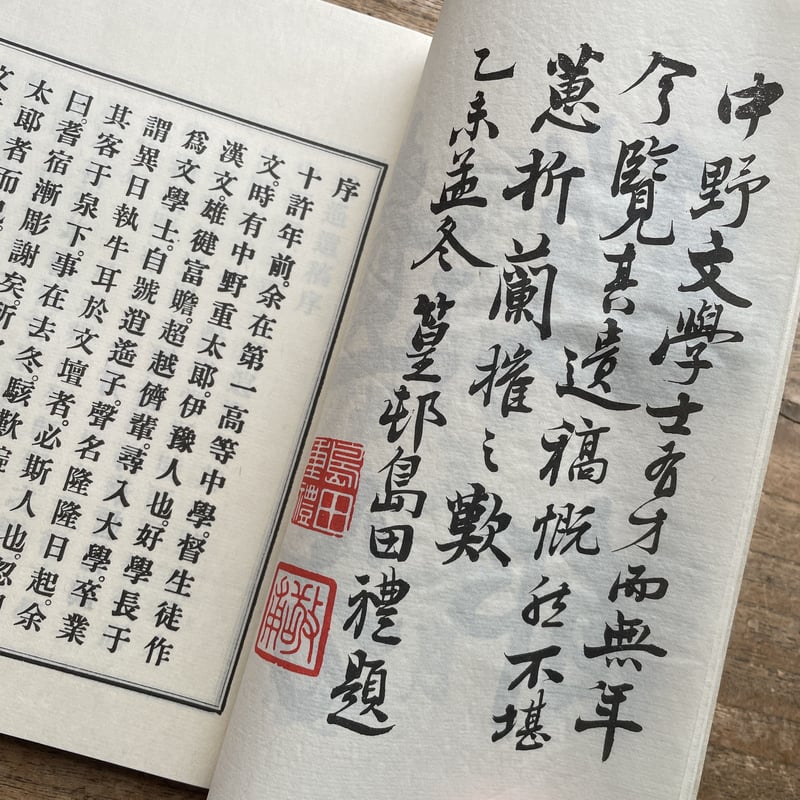 中野文學士有才而無年
今覽其遺稿慨然不堪
蕙折蘭摧之歎
乙未孟冬篁邨島田禮題
島田重禮
敬甫
序
十許年前。余在第一高等中學。督生徒作
文。時有中野重太郎。伊豫人也。好學長于
漢文。雄健富贍。超越儕輩。尋入大學。卒業
爲文學士。自號逍遙子。聲名隆隆日起。余
謂異日執牛耳於文壇者。必斯人也。忽
其客于泉下。事在去冬。駭歎
曰。耆宿漸彫謝矣。所
太郎者而已。
文